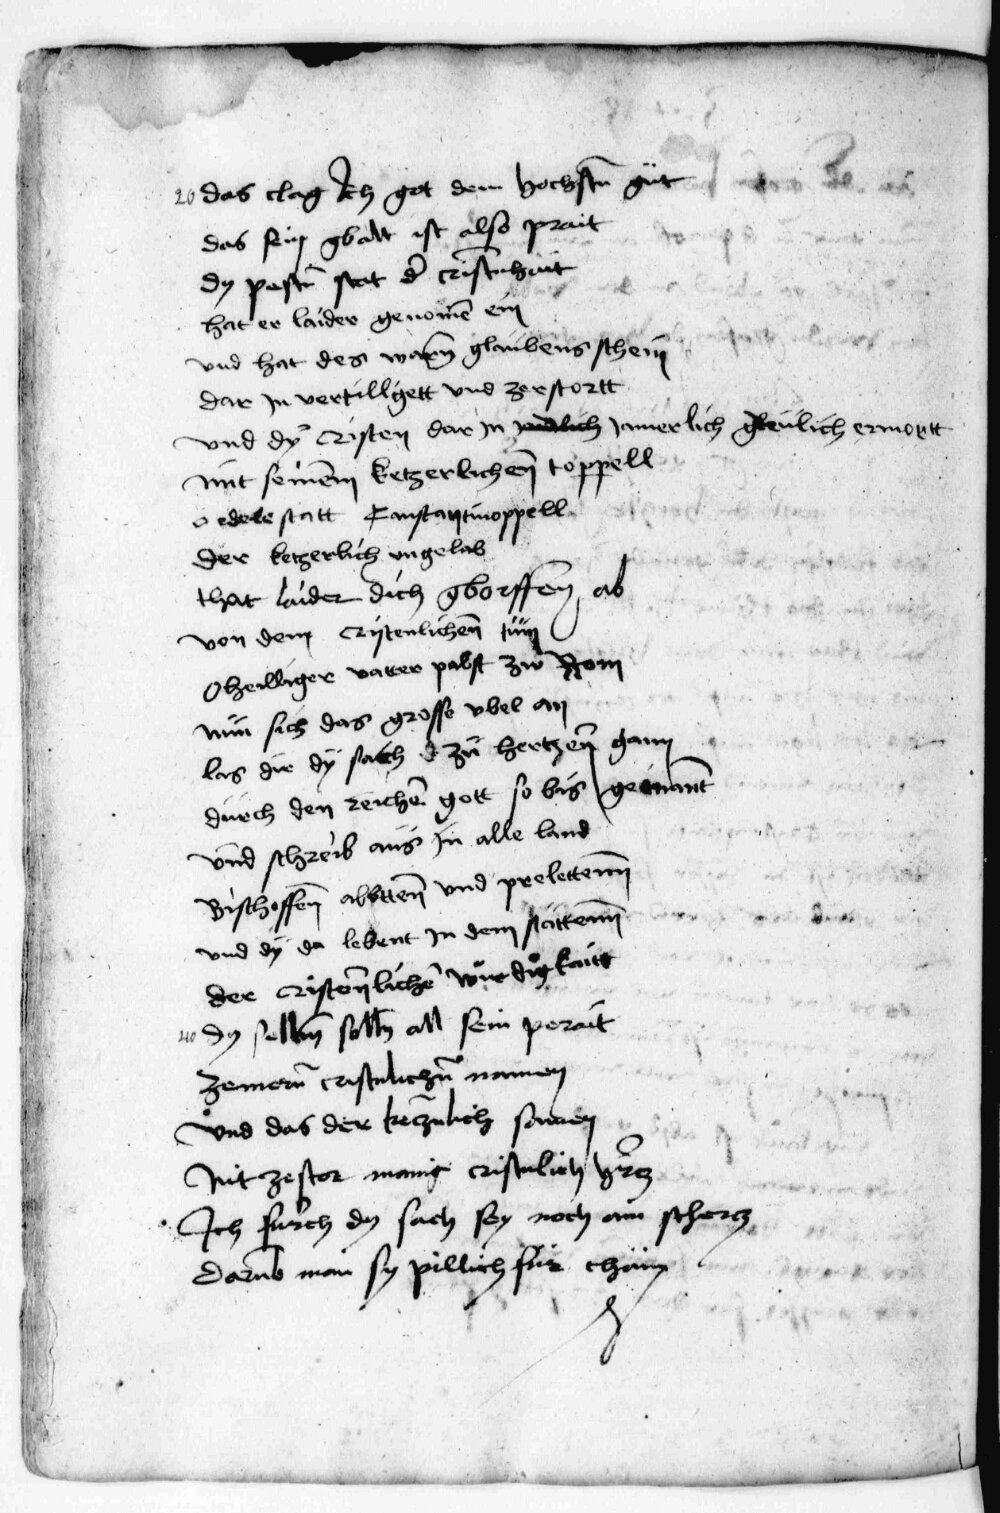 20 das clag Ich got dem hochstn güt
das sein gbalt ist also prait
dy pestn stat d cristnhait
hat er laider genomē ein
vnd hat des warn glaubens schein
dar In vertilligett vnd zerstortt
vnd dy cristen dar In Jamerlich greulich ermortt
mit seinem ketzerlichen toppell
o edele statt Constantinoppell
der ketzerlich vngelab
that laider dich gborffen ab
von dem cristenlichen tum
O heilliger vatter pabst zw Rom
nun sich das grosse vbel an
las dir dy sach zu hertzen gann
durch den reichen gott so bis gemant
vnd schreib aus In alle land
Bischoffen abbtten vnd prelettenn
vnd dy da lebent In dem stättenn
der cristenlichē wurdigkaitt
40 dy selbn solln all sein perait
zemern cristnlichn namen
vnd das der keczrlich samen
Nit zestor manig cristnlich hercz
Ich furch dy sach sey noch ain schercz
darub man sy pillich für chäm